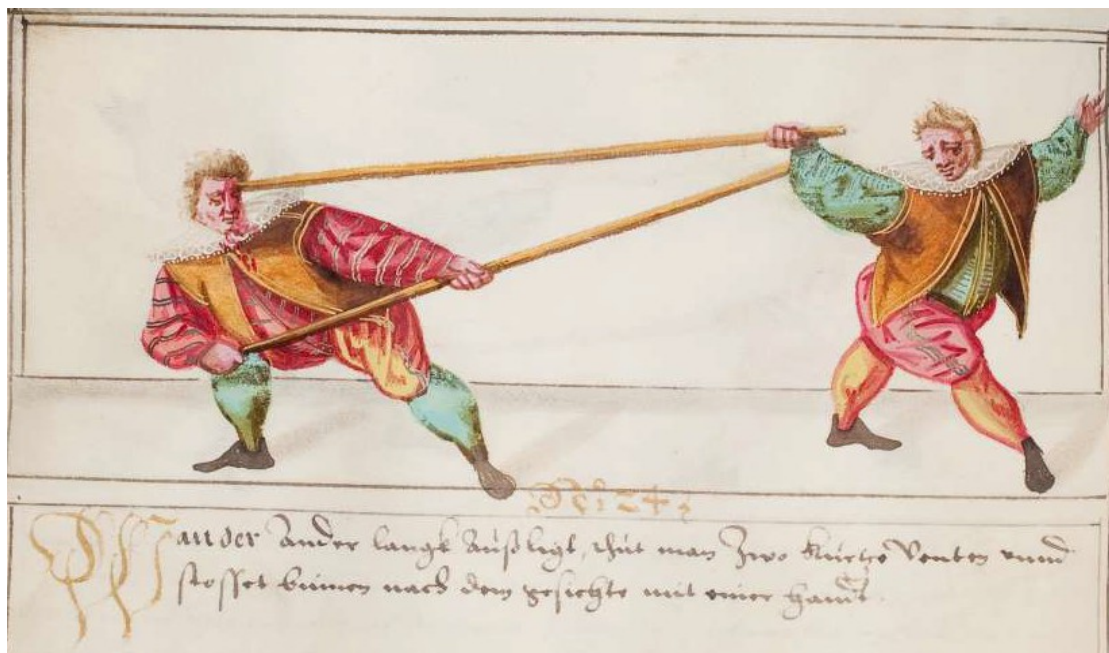 No 24
Wan der Ander langk Außligt, thut man Zwo Kurtze Venten vnnd
stosset binnen nach dem gesichte mit einer handt.